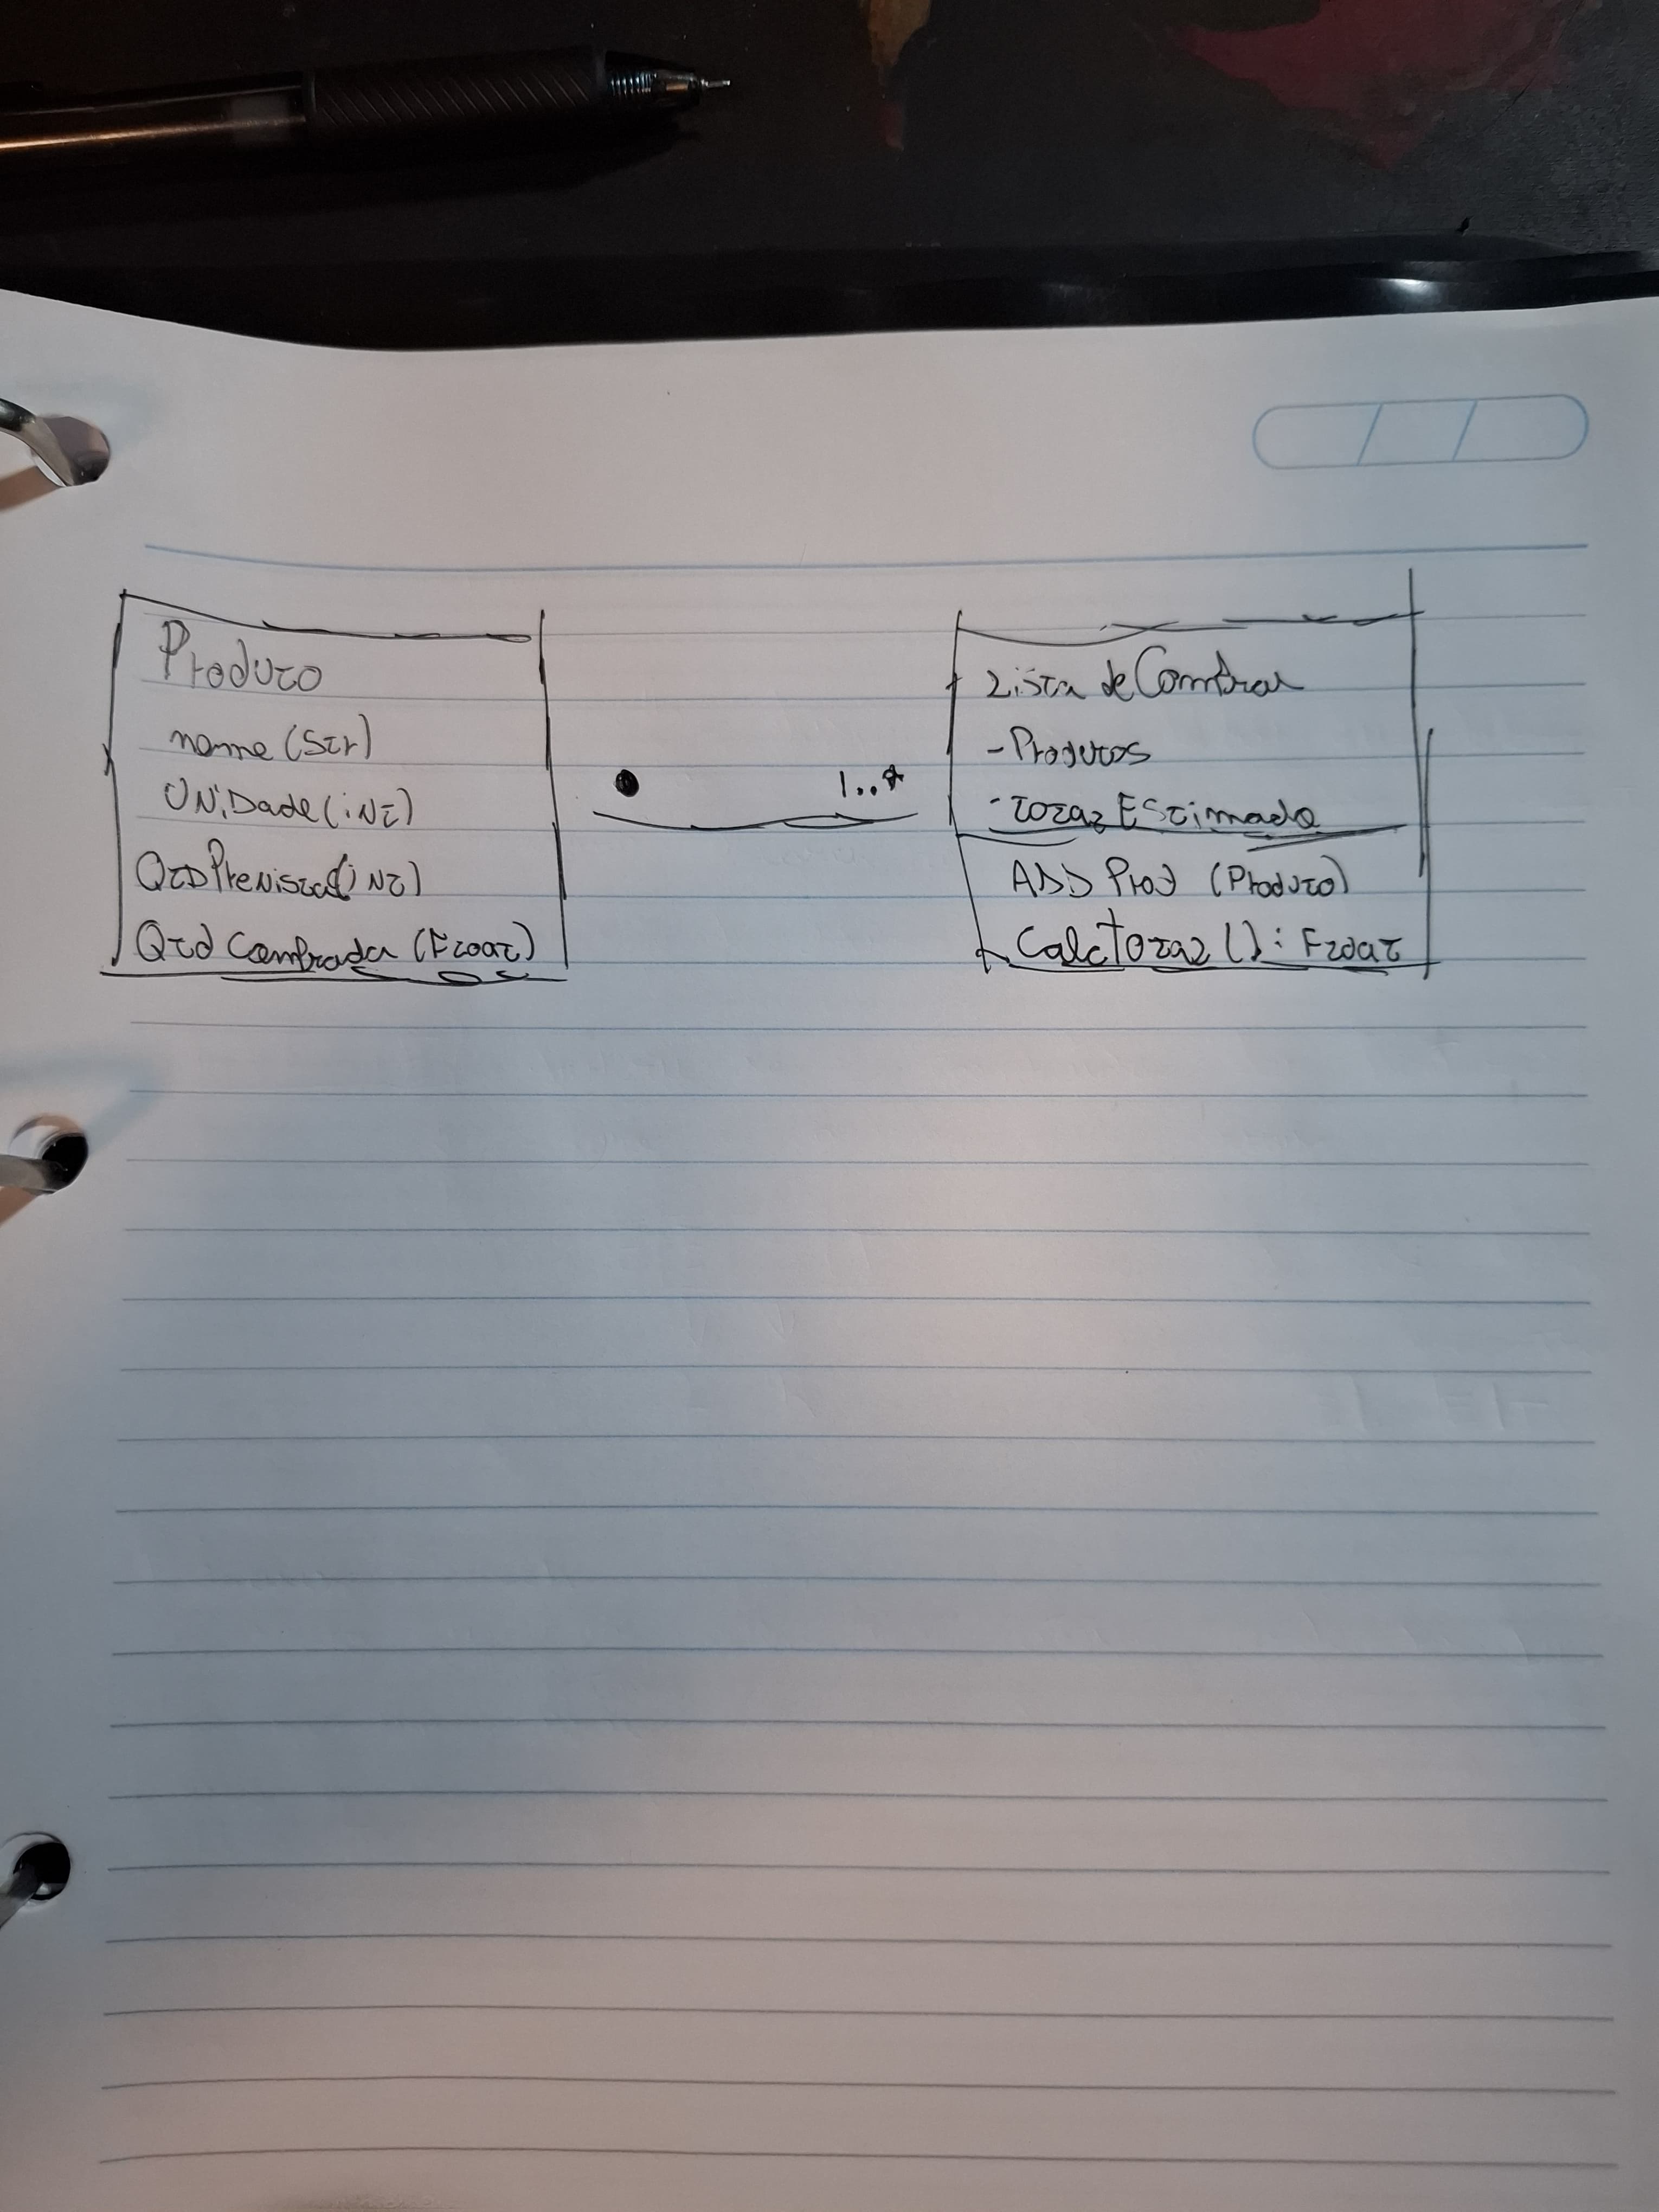 Produto
nome (Str)
UNiDade (iNt)
QtDPrevista (iNt)
Qtd Comprada (Float)
1..*
Lista de Compras
- Produtos
- total EStimado
ADD Prod (Produto)
CalcTotal () : Float